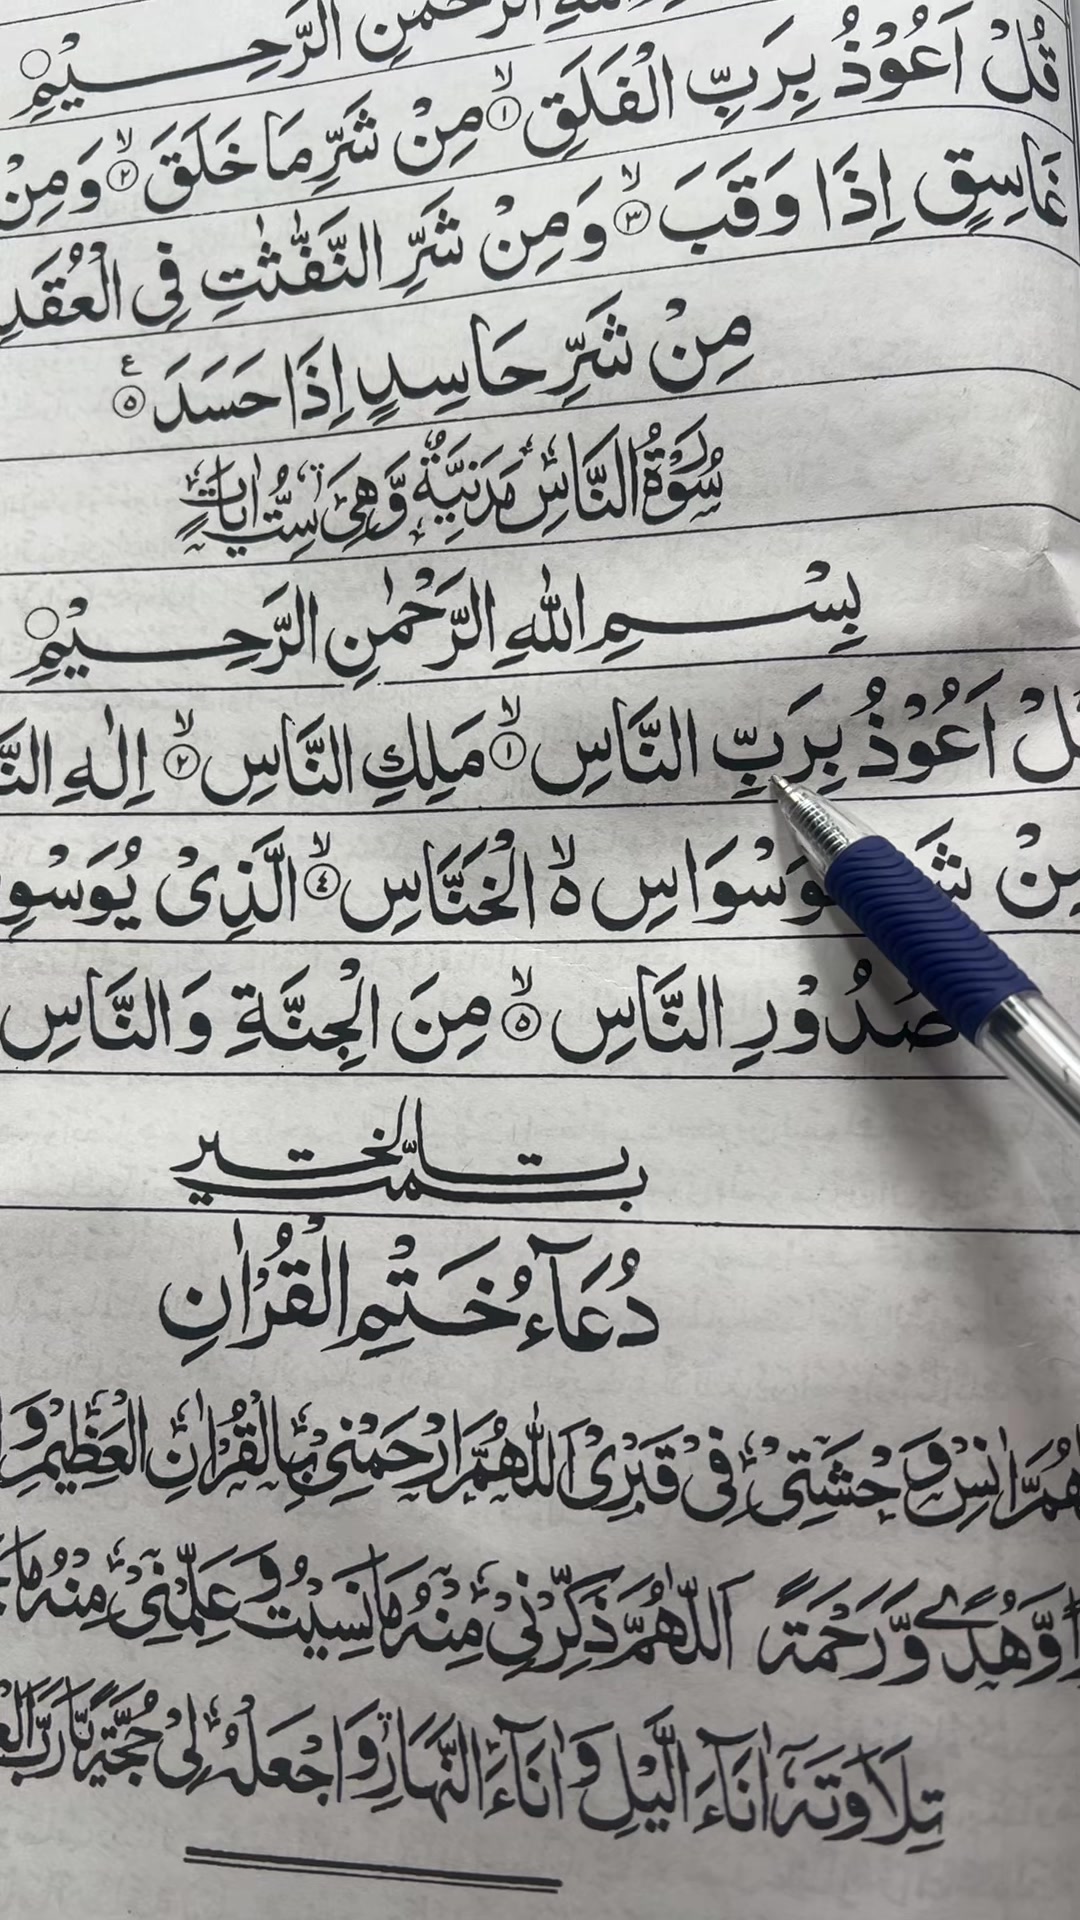 اللهِ الرَّحْمٰنِ الرَّحِيْمِ
قُلْ اَعُوْذُ بِرَبِّ الْفَلَقِ ۙ﴿۱﴾ مِنْ شَرِّ مَا خَلَقَ ۙ﴿۲﴾ وَمِنْ
غَاسِقٍ اِذَا وَقَبَ ۙ﴿۳﴾ وَمِنْ شَرِّ النَّفّٰثٰتِ فِى الْعُقَدِ
مِنْ شَرِّ حَاسِدٍ اِذَا حَسَدَ ﴿۵﴾ ع
سُوْرَةُ النَّاسِ مَدَنِيَّةٌ وَّهِىَ سِتُّ اٰيَاتٍ
بِسْمِ اللهِ الرَّحْمٰنِ الرَّحِيْمِ
قُلْ اَعُوْذُ بِرَبِّ النَّاسِ ۙ﴿۱﴾ مَلِكِ النَّاسِ ۙ﴿۲﴾ اِلٰهِ
مِنْ وَسْوَاسِ ۙ۬ الْخَنَّاسِ ۙ﴿۴﴾ الَّذِىْ يُوَسْوِ
صُدُوْرِ النَّاسِ ۙ﴿۵﴾ مِنَ الْجِنَّةِ وَالنَّاسِ
تمّت بالخير
دُعَآءُ خَتْمِ الْقُرْاٰنِ
اٰنِسْ وَحْشَتِىْ فِىْ قَبْرِىْ اَللّٰهُمَّ ارْحَمْنِىْ بِالْقُرْاٰنِ الْعَظِيْمِ وَ
وَّهُدًى وَّرَحْمَةً اَللّٰهُمَّ ذَكِّرْنِىْ مِنْهُ مَا نَسِيْتُ وَعَلِّمْنِىْ مِنْهُ مَا
تِلَاوَتَهٗ اٰنَآءَ الَّيْلِ وَاٰنَآءَ النَّهَارِ وَاجْعَلْهُ لِىْ حُجَّةً يَّا رَبَّ